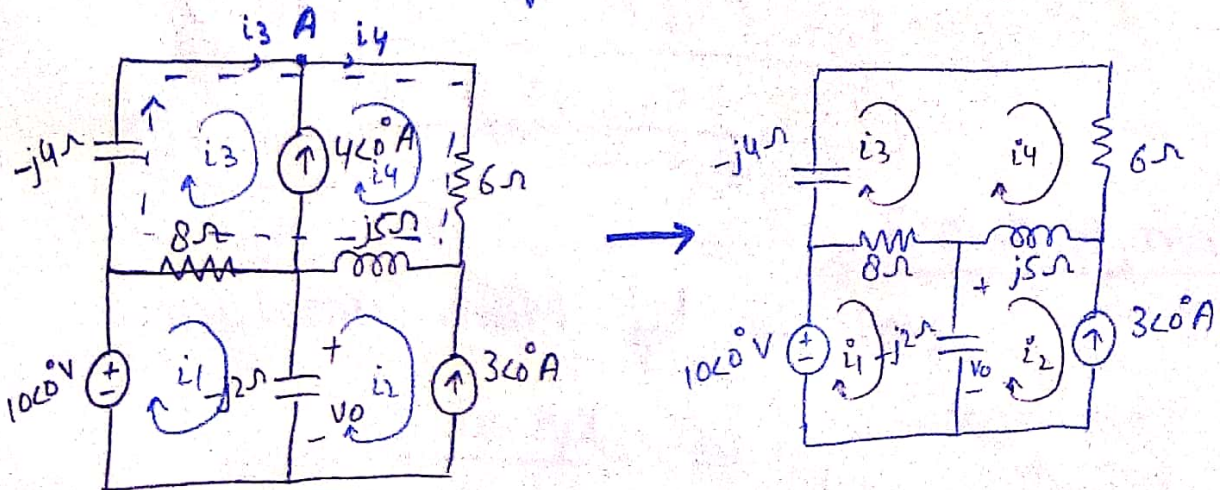 i3 A i4
-j4Ω i3 4<0°A i4 6Ω
8Ω j5Ω
10<0°V i1 -j2Ω + Vo - i2 3<0°A
-j4Ω i3 i4 6Ω
8Ω j5Ω
10<0°V i1 -j2Ω + Vo - i2 3<0°A